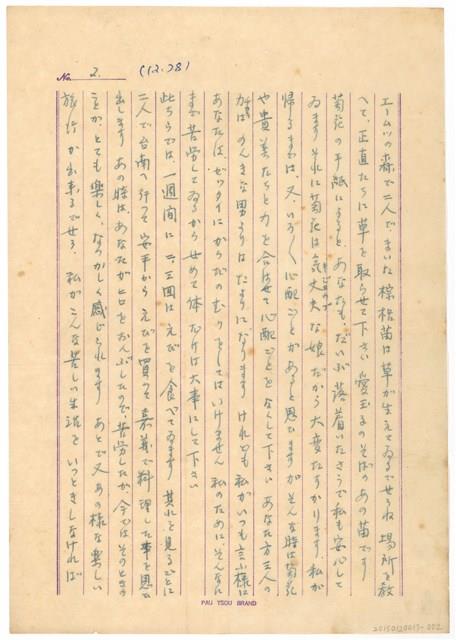 No. 2. (12.28)
エームツの森で二人でまいた棕梠苗は草が生えてゐるでせうね 場所を教
へて、正直たちに草を取らせて下さい 愛玉子のそばのあの苗です
菊花の手紙によると、あなたも、だいぶ落着いたさうで私も安心して
ゐます それに菊花は気丈夫な娘だから大変たすかります、私が
帰るまでは、又、いろ〱心配ごとがあると思ひますがそんな時は菊花
や貴美たちと力を合はせて心配ごとをなくして下さい あなた方三人の
力は のんきな男よりはたよりになります けれども 私がいつも言ふ様に
あなたは、ゼッタイにからだのむりをしてはいけません 私のために、そんなに
まで苦労してゐるからせめて体だけは大事にして下さい
此ちらでは、一週間に二、三回はえびを食べてゐます 其れを見るごとに
二人で台南へ行つて安平からえびを買つて嘉義で料理した事を思ひ
出します あの時は、あなたがヒロをおんぶしたので、苦労したが、今ではそのときの
ことが、とても楽しく、なつかしく感じられます あとで又あの様な楽しい
旅行が出来るでせう、私がこんな苦しい生活をいつときしなければ
PAU TSOU BRAND
20150120013-002